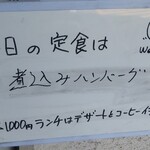 日の定食は
煮込みハンバーグ
1000円ランチはデザート&コーヒー